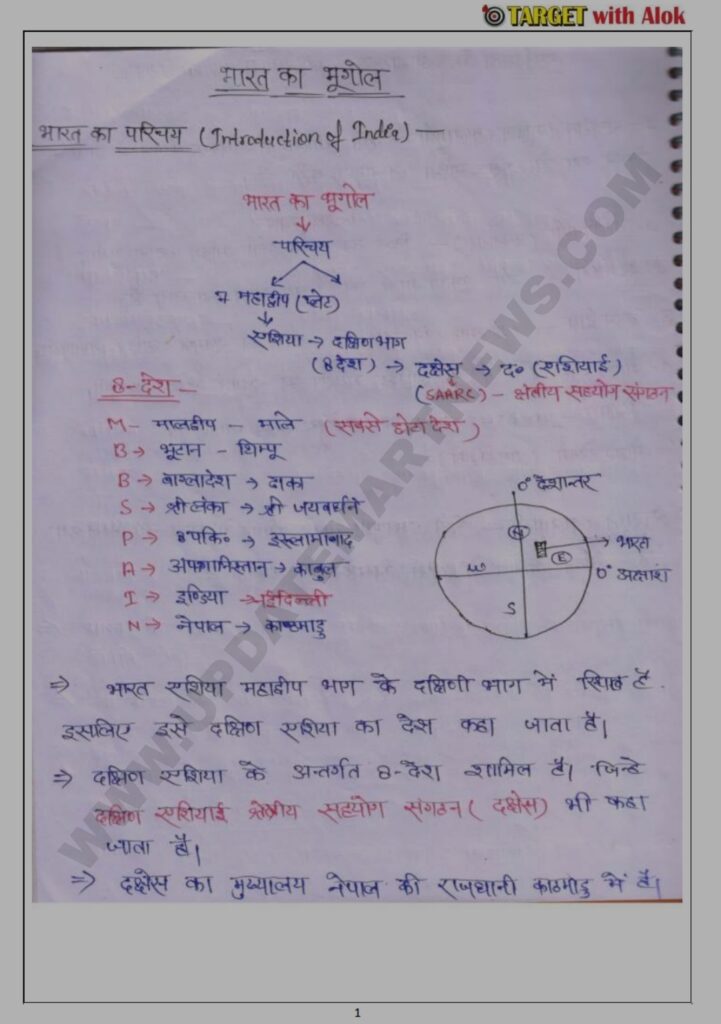 TARGET with Alok
भारत का भूगोल
भारत का परिचय (Introduction of India) —
भारत का भूगोल
परिचय
महाद्वीप (प्लेट)
एशिया → दक्षिण भाग
(8 देश) → दक्षेस → द० (एशियाई)
(SAARC) - क्षेत्रीय सहयोग संगठन
8-देश —
M - मालदीप - माले (सबसे छोटा देश)
B → भूटान - थिम्पू
B → बाग्लादेश → ढाका
S → श्रीलंका → श्री जयवर्धने
P → पकि० → इस्लामाबाद
A → अफगानिस्तान → काबुल
I → इण्डिया → नईदिल्ली
N → नेपाल → काठमाडु
0° देशान्तर
N
→ भारत
E
W
0° अक्षांश
S
⇒ भारत एशिया महाद्वीप भाग के दक्षिणी भाग में स्थित है.
इसलिए इसे दक्षिण एशिया का देश कहा जाता है।
⇒ दक्षिण एशिया के अन्तर्गत 8-देश शामिल है। जिन्हे
दक्षिण एशियाई क्षेत्रीय सहयोग संगठन (दक्षेस) भी कहा
जाता है।
⇒ दक्षेस का मुख्यालय नेपाल की राजधानी काठमाडु में है।
WWW.UPDATEMARTNEWS.COM
1